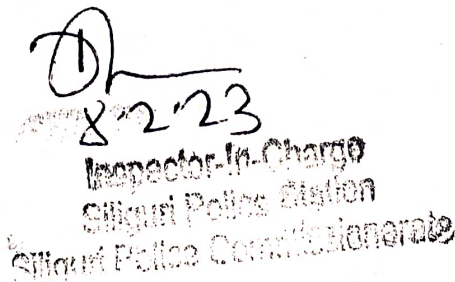 8.2.23
Inspector-In-Charge
Siliguri Police Station
Siliguri Police Commissionerate